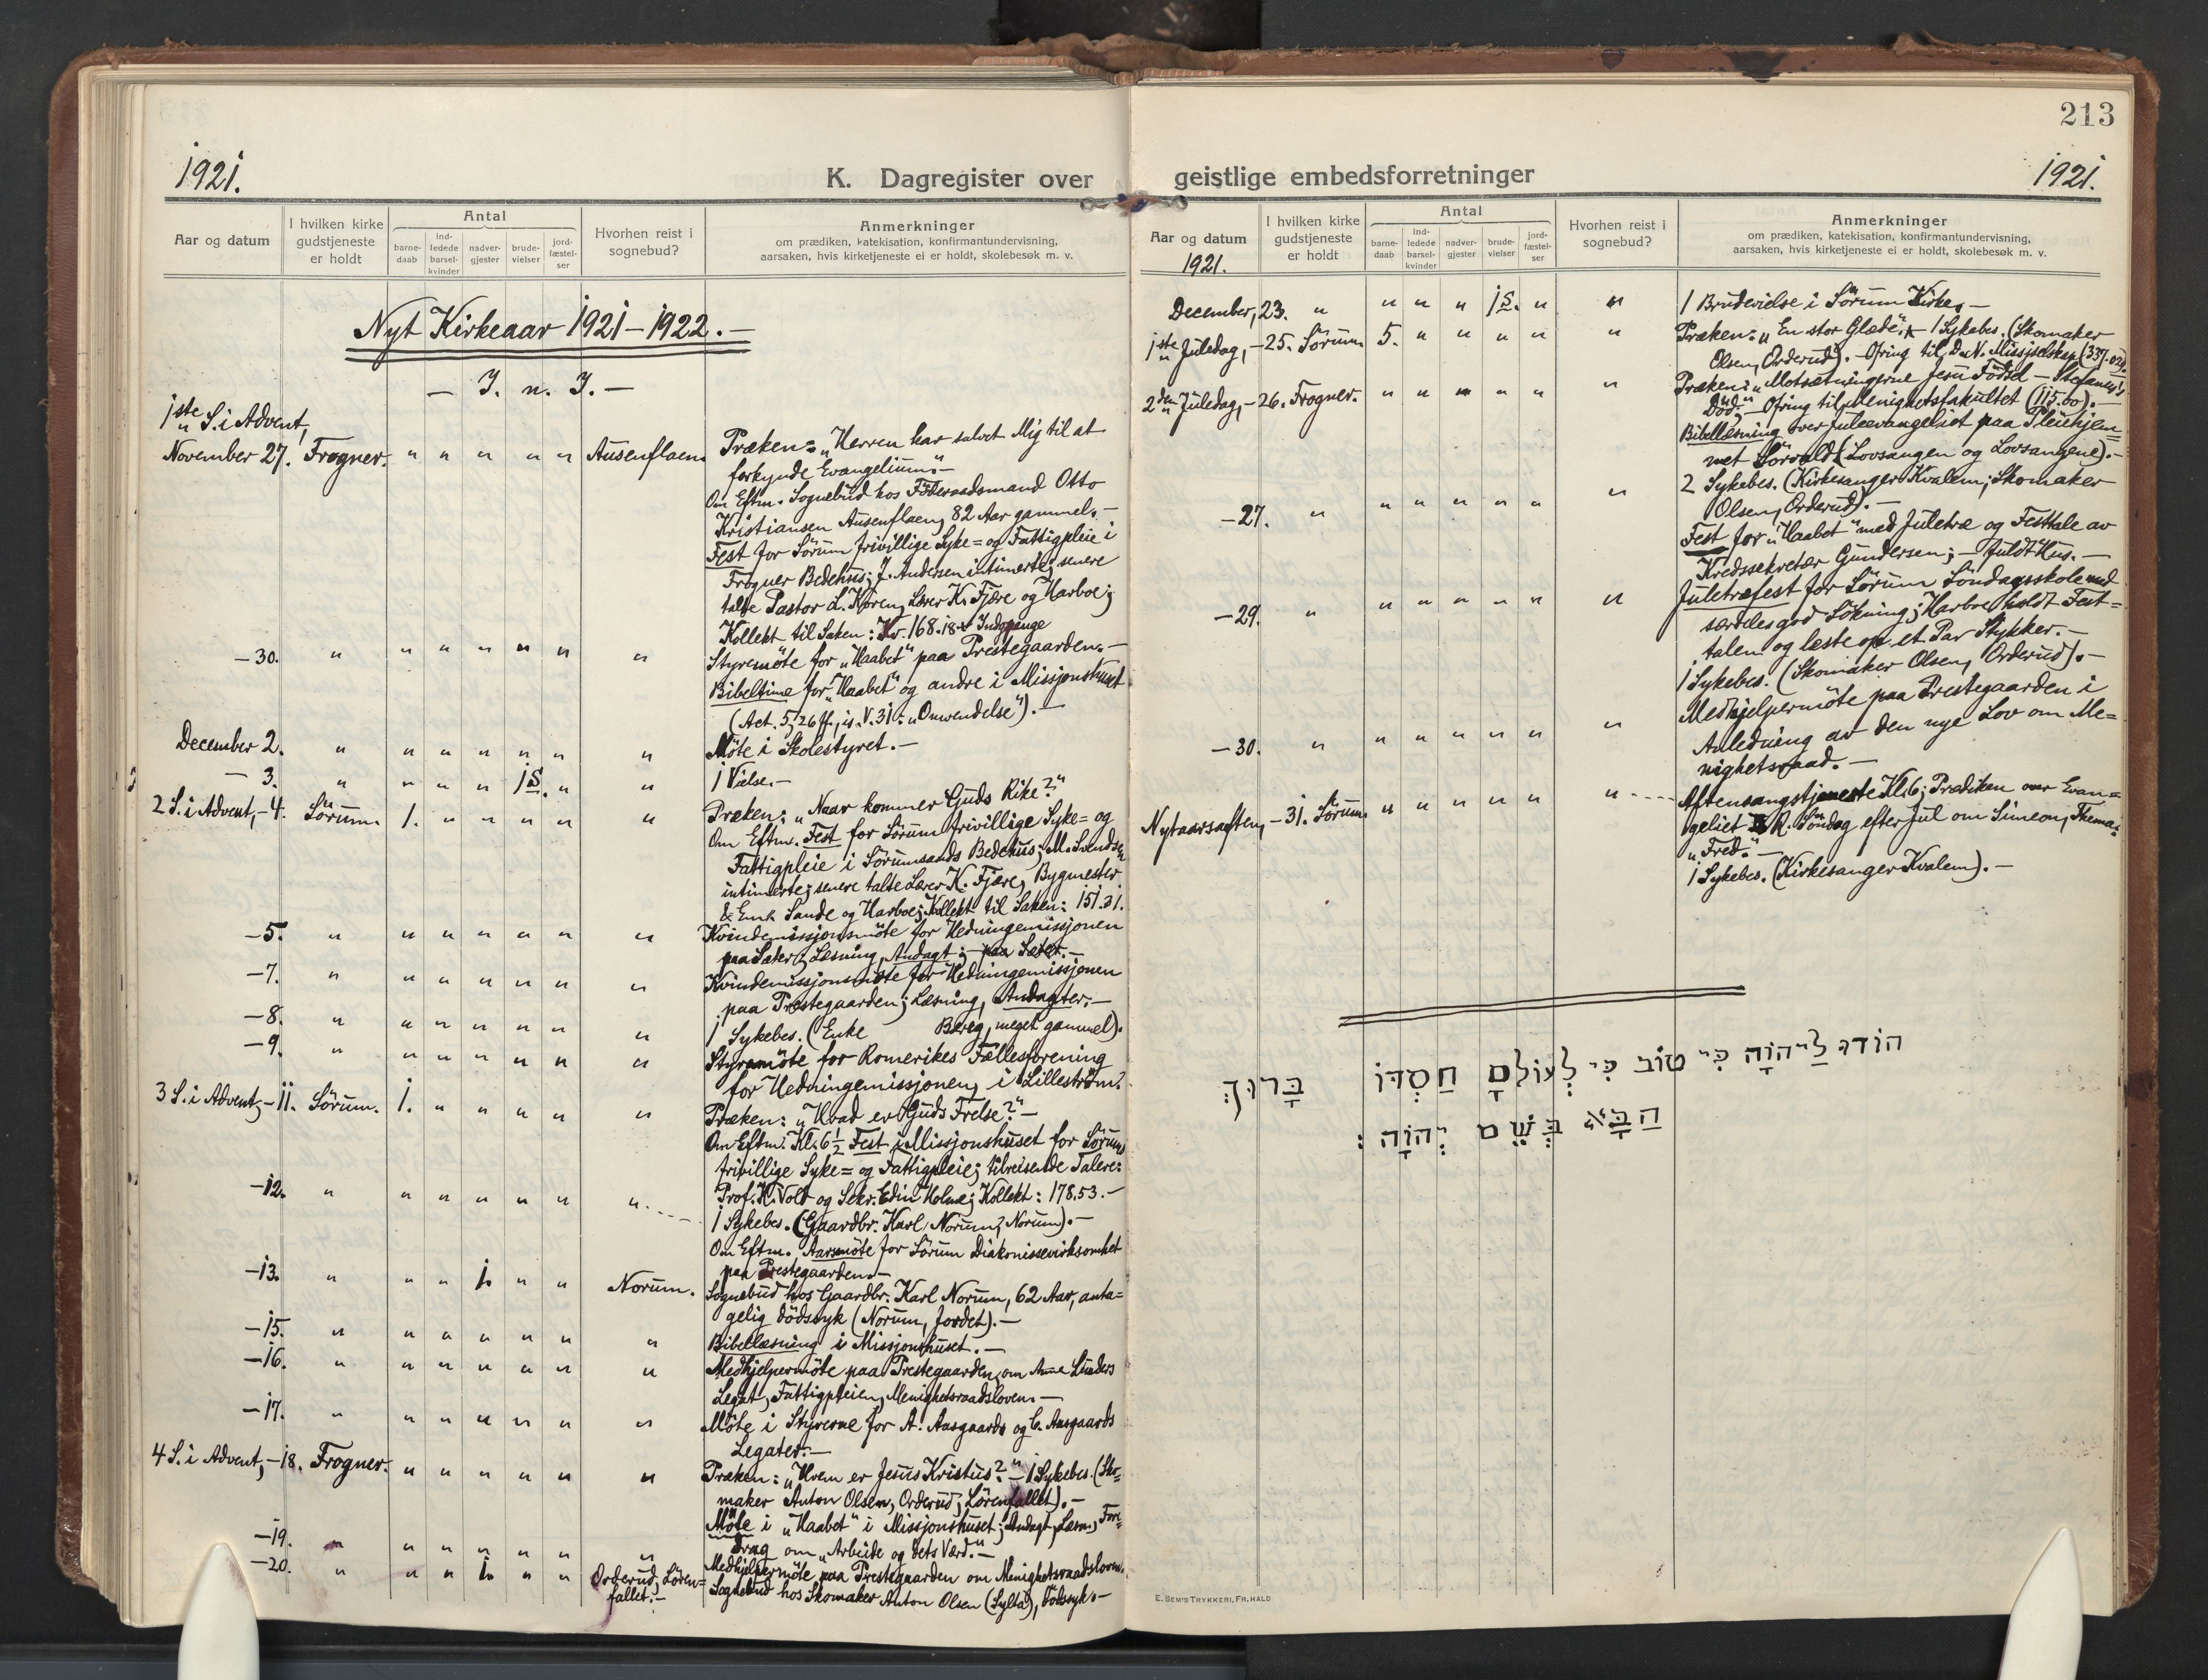 1921.
K. Dagregister over
Aar og datum
I hvilken kirke gudstjeneste er holdt
Antal
barnedaab
indledede barselkvinder
nadvergjester
brudevielser
jordfæstelser
Hvorhen reist i sognebud?
Anmerkninger
om prædiken, katekisation, konfirmantundervisning,
aarsaken, hvis kirketjeneste ei er holdt, skolebesøk m. v.
Nyt Kirkeaar 1921-1922.-
- J. n. J. -
1ste S. i Advent,
November 27. Frogner. " " " " " Ausenflaen. Præken: "Herren har salvet Mig til at
forkynde Evangelium."-
Om Eftm. Sognebud hos Föderaadsmand Otto
Kristiansen Ausenflaen, 82 Aar gammel.-
Fest for Sörum frivillige Syke= og Fattigpleie i
Frogner Bedehus; J. Andersen intimerte; senere
talte Pastor L. Koren, Lærer K. Fjære og Harboe;
Kollekt til Saken: Kr. 168.18
-30. " " " " " " " Styremöte for "Haabet" paa Prestegaarden.-
Bibeltime for "Haabet" og andre i Missjonshuset
(Act. 5, 26 ff., is. V. 31: "Omvendelse").-
December 2. " " " " " " " Möte i Skolestyret.-
- 3. " " " " 1S. " " 1 Vielse.-
2 S. i Advent, -4. Sörum. 1. " " " " " Præken: "Naar kommer Guds Rike?"
Om Eftm. Fest for Sörum frivillige Syke= og
Fattigpleie i Sörumsands Bedehus; M. Svendsen
intimerte; senere talte Lærer K. Fjære, Bygmester
Sande og Harboe; Kollekt til Saken: 151.31.
-5. " " " " " " " Kvindemissjonsmöte for Hedningemissjonen
paa Sæter; Læsning, Andagt; paa Sæter.-
-7. " " " " " " " Kvindemissjonsmöte for Hedningemissjonen
paa Prestegaarden; Læsning, Andagter.-
-8. " " " " " " " 1 Sykebes. (Enke Berg, meget gammel).
-9. " " " " " " " Styremöte for Romerikes Fællesforening
for Hedningemissjonen, i Lilleström.
3 S. i Advent, -11. Sörum. 1. " " " " " Præken: "Hvad er Guds Frelse?"-
Om Eftm. Kl. 6½ Fest i Missjonshuset for Sörum
frivillige Syke= og Fattigpleie; tilreisende Talere:
Prof. K. Vold og Sekr. Edin Holme; Kollekt: 178.53.-
-12. " " " " " " " 1 Sykebes. (Gaardbr. Karl Norum, Norum).-
Om Eftm. Aarsmöte for Sörum Diakonissevirksomhet
paa Prestegaarden.-
-13. " " " 1. " " Norum. Sognebud hos Gaardbr. Karl Norum, 62 Aar, anta=
gelig dödssyk (Norum, Jordet).-
-15. " " " " " " " Bibellæsning i Missjonshuset.-
-16. " " " " " " " Medhjelpermöte paa Prestegaarden, om Anne Lunders
Legat, Fattigpleien, Menighetsraadsloven.-
-17. " " " " " " " Möte i Styrerne for A. Aasgaards og C. Aasgaards
Legater.-
4 S. i Advent, -18. Frogner. " " " " " " Præken: "Hvem er Jesus Kristus?"- 1 Sykebes. (Sko=
maker Anton Olsen, Orderud, Lörenfallet).-
Möte i "Haabet" i Missjonshuset; Andagt, Læsn., Fore=
drag om "Arbeide og dets Værd."-
-19. " " " " " " " Medhjelpermöte paa Prestegaarden om Menighetsraadsloven.
-20. " " " 1. " " Orderud, Lören= Sognebud hos Skomaker Anton Olsen (Sylta), dödssyk.-
fallet.-
213
geistlige embedsforretninger
1921.
Aar og datum
1921.
I hvilken kirke gudstjeneste er holdt
Antal
barnedaab
indledede barselkvinder
nadvergjester
brudevielser
jordfæstelser
Hvorhen reist i sognebud?
Anmerkninger
om prædiken, katekisation, konfirmantundervisning,
aarsaken, hvis kirketjeneste ei er holdt, skolebesøk m. v.
December, 23. " " " " 1S. " " 1 Brudevielse i Sörum Kirke.-
1ste Juledag, -25. Sörum. 5. " " " " " Præken: "En stor Glæde". 1 Sykebes. (Skomaker
Olsen, Orderud).- Ofring til D. N. Missjselskap (337.02).
2den Juledag, -26. Frogner. " " " " " " Præken: "Motsætningerne Jesu Födsel - Stefanus's
Död". Ofring til Menighetsfakultet (115.00).-
Bibellæsning over Juleevangeliet paa Pleiehjem=
met Sörvald (Lovsangen og Lovsangene).-
-27. " " " " " " " 2 Sykebes. (Kirkesanger Kvalem; Skomaker
Olsen, Orderud).-
Fest for "Haabet" med Juletræ og Festtale av
Kredssekretær Gundersen; - fuldt Hus.-
-29. " " " " " " " Juletræfest for Sörum Söndagsskole med
særdeles god Sökning; Harboe holdt Fest=
talen og læste op et Par Stykker.-
1 Sykebes. (Skomaker Olsen, Orderud).-
-30. " " " " " " " Medhjelpermöte paa Prestegaarden i
Anledning av den nye Lov om Me=
nighetsraad.-
Nytaarsaften, -31. Sörum. " " " " " " Aftensangstjeneste Kl. 6; Prædiken over Evan=
geliet R. Söndag efter Jul om Simeon, Thema:
"Fred."-
1 Sykebes. (Kirkesanger Kvalem).-
הוֹדוּ לַיהוָה כִּי טוֹב כִּי לְעוֹלָם חַסְדּוֹ בָּרוּךְ
הַבָּא בְּשֵׁם יְהוָה:
E. SEM'S TRYKKERI, FR.HALD